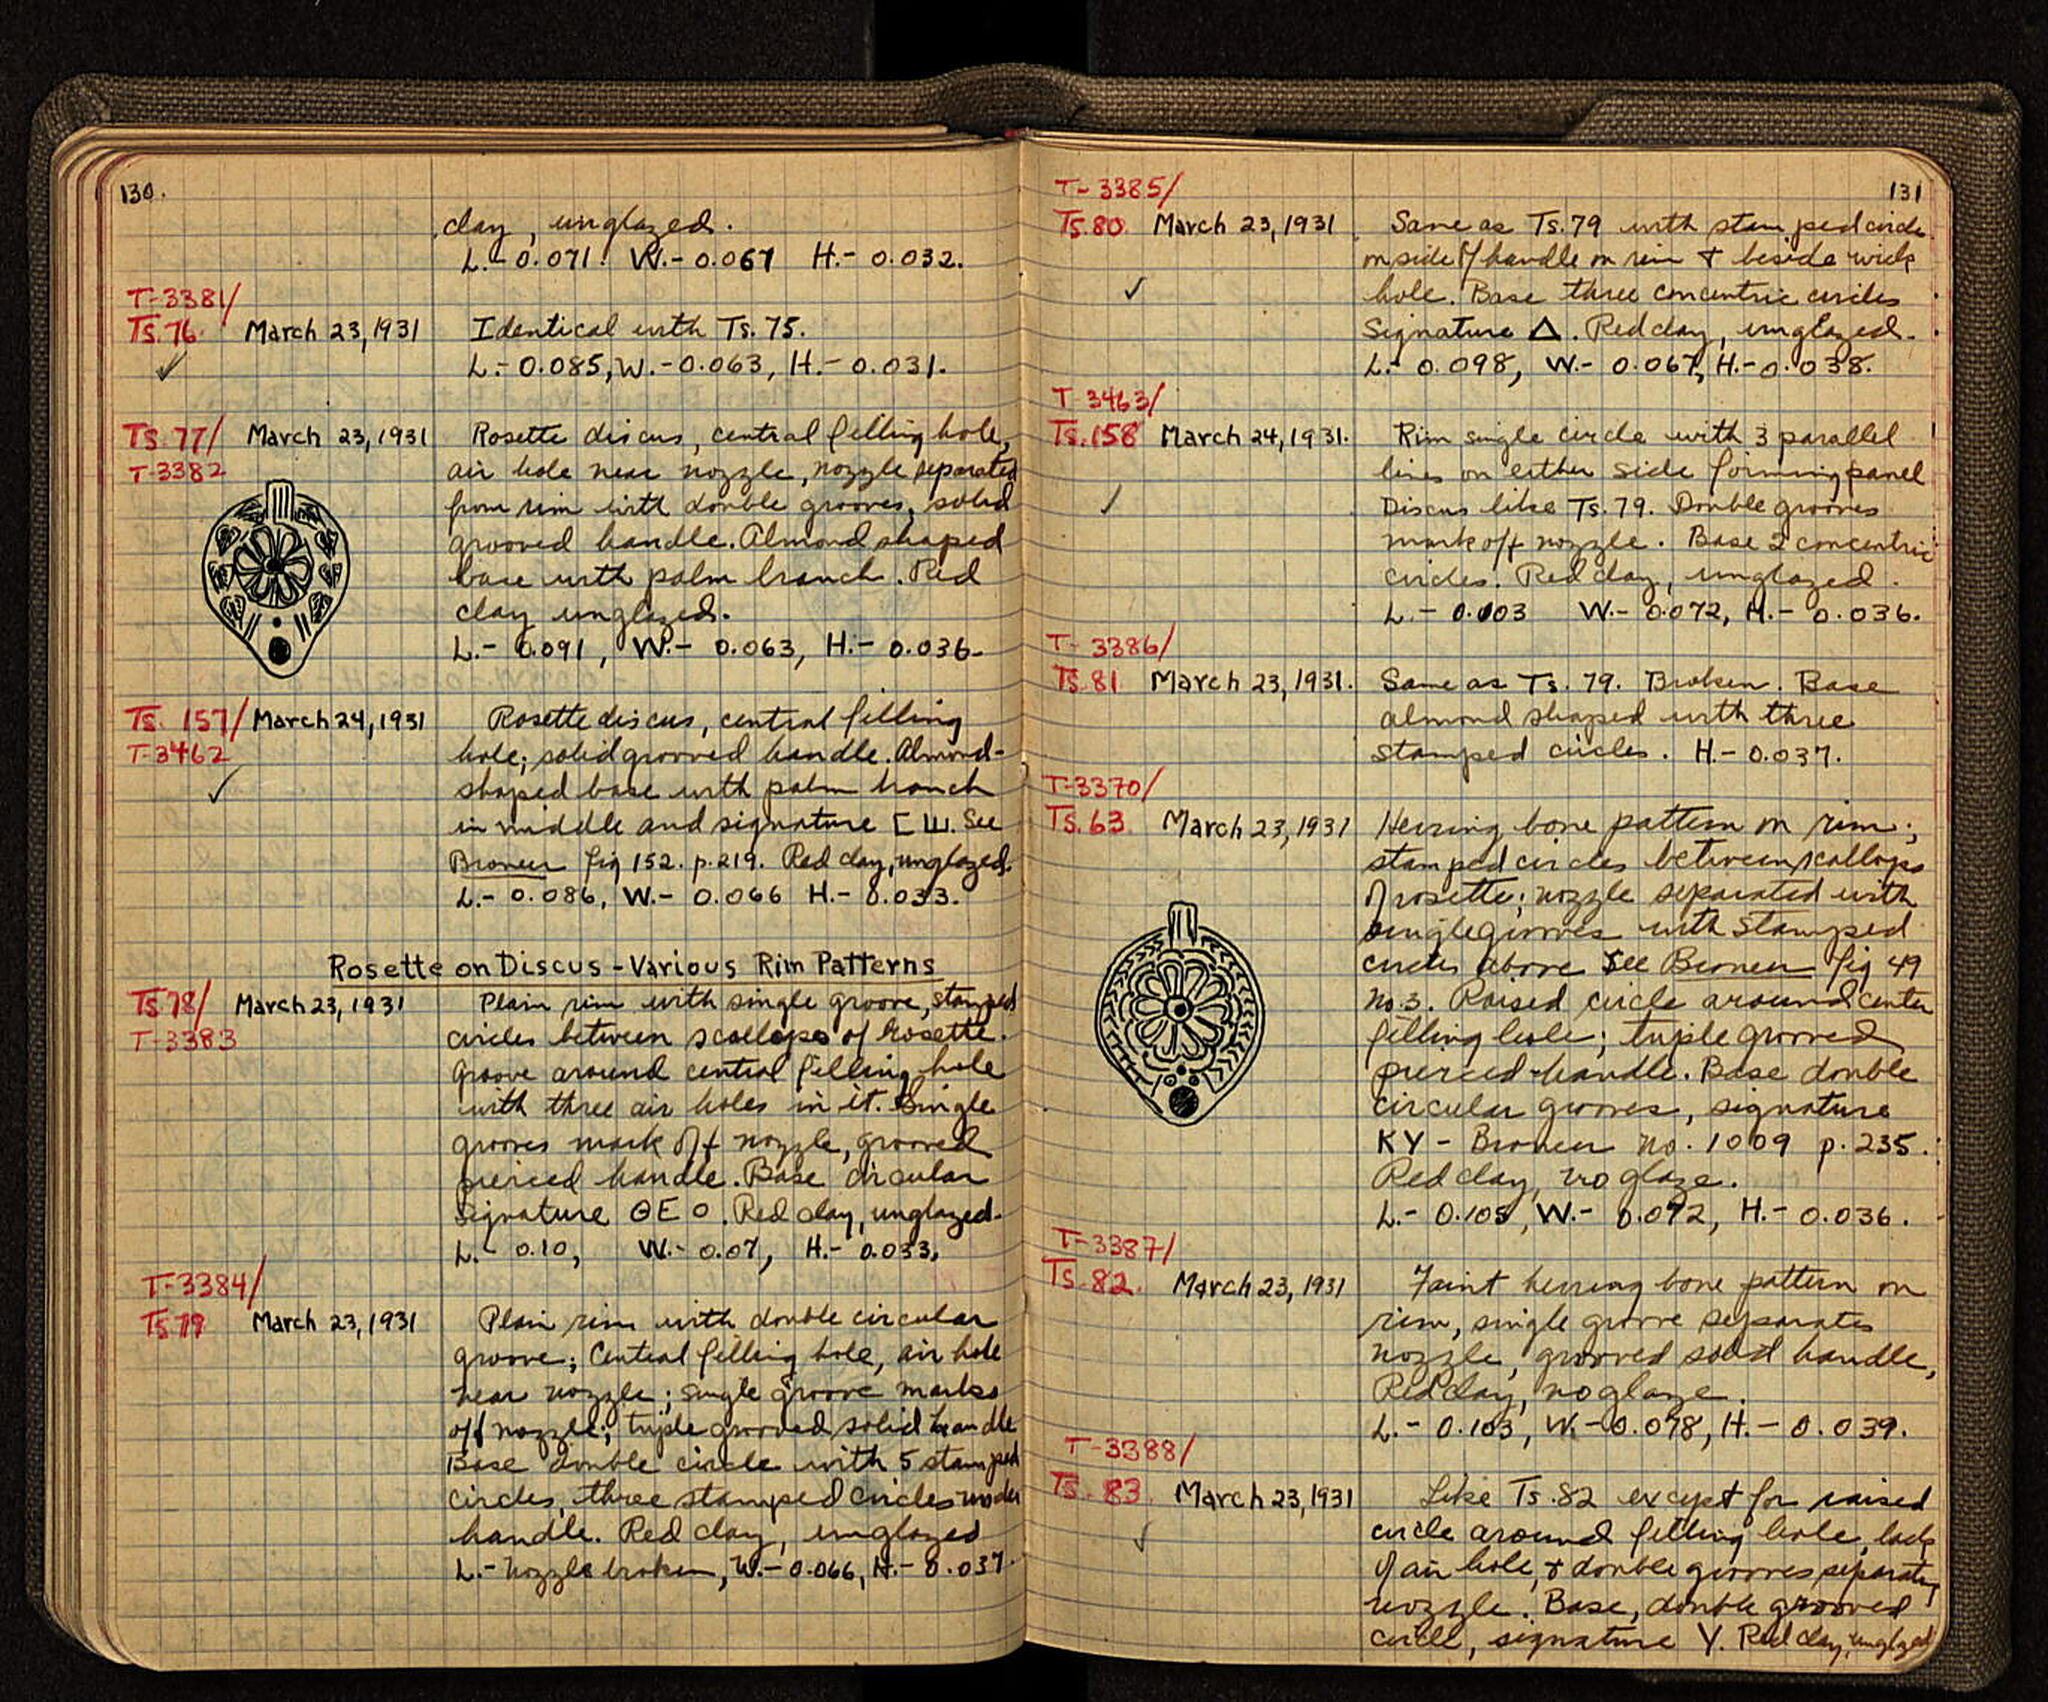 130.
clay, unglazed.
L.- 0.071. W.- 0.067 H.- 0.032.
T-3381/
Ts. 76. March 23, 1931 Identical with Ts. 75.
L.- 0.085, W.- 0.063, H.- 0.031.
Ts. 77/ March 23, 1931 Rosette discus, central filling hole,
T-3382 air hole near nozzle, nozzle separated
from rim with double grooves, solid
grooved handle. Almond shaped
base with palm branch. Red
clay unglazed.
L.- 0.091, W.- 0.063, H.- 0.036-
Ts. 157/ March 24, 1931 Rosette discus, central filling
T-3462 hole; solid grooved handle. Almond-
shaped base with palm branch
in middle and signature [ Ш. See
Broneer fig 152. p. 219. Red clay, unglazed.
L.- 0.086, W.- 0.066 H.- 0.033.
Rosette on Discus - Various Rim Patterns
Ts 78/ March 23, 1931 Plain rim with single groove, stamped
T-3383 circles between scallops of Rosette.
Groove around central filling hole
with three air holes in it. Single
grooves mark off nozzle, grooved
pierced handle. Base circular
Signature ΘE O. Red clay, unglazed.
L.- 0.10, W.- 0.07, H.- 0.033,
T-3384/
Ts 79 March 23, 1931 Plain rim with double circular
groove; Central filling hole, air hole
near nozzle; single groove marks
off nozzle; triple grooved solid handle
Base double circle with 5 stamped
circles, three stamped circles under
handle. Red clay, unglazed
L.- Nozzle broken, W.- 0.066, H.- 0.037.
131
T-3385/
Ts. 80 March 23, 1931. Same as Ts. 79 with stamped circle
on side of handle on rim & beside wick
hole. Base three concentric circles
Signature Δ. Red clay, unglazed.
L.- 0.098, W.- 0.067, H.- 0.038.
T-3463/
Ts. 158 March 24, 1931. Rim single circle with 3 parallel
lines on either side forming panel
Discus like Ts. 79. Double grooves
mark off nozzle. Base 2 concentric
circles. Red clay, unglazed.
L.- W.- 0.072, H.- 0.036.
T-3386/
Ts. 81 March 23, 1931. Same as Ts. 79. Broken. Base
almond shaped with three
stamped circles. H.- 0.037.
T-3370/
Ts. 63 March 23, 1931 Herring bone pattern on rim;
stamped circles between scallops
of rosette; nozzle separated with
single grooves with stamped
circles above See Broneer fig 49
No. 3. Raised circle around center
filling hole; triple grooved
pierced handle. Base double
circular grooves, signature
KY - Broneer No. 1009 p. 235.
Red clay, no glaze.
L.- 0.105, W.- 0.092, H.- 0.036.
T-3387/
Ts. 82. March 23, 1931 Faint herring bone pattern on
rim, single groove separates
nozzle, grooved solid handle,
Red clay, no glaze.
L.- 0.103, W.- 0.078, H.- 0.039.
T-3388/
Ts. 83 March 23, 1931 Like Ts. 82 except for raised
circle around filling hole, lack
of air hole, & double grooves separating
nozzle. Base, double grooved
circle, signature Y. Red clay, unglazed